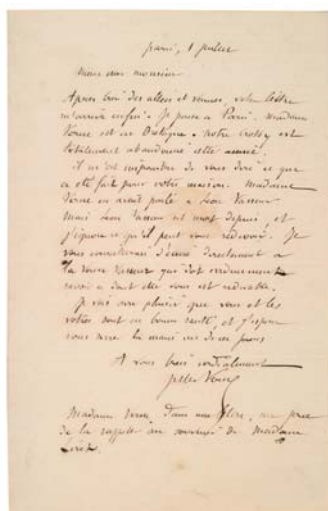 Paris, 1 juillet
Mon cher monsieur
Après bien des allées et venues, votre lettre
m'arrive enfin. Je passe à Paris. Madame
Verne est en Bretagne. Notre Crotoy est
totalement abandonné cette année.
Il m'est impossible de vous dire ce que
a été fait pour votre maison. Madame
Verne en avait parlé à Léon Vasseur
mais Léon Vasseur est mort depuis, et
j'ignore ce qu'il peut vous redevoir. Je
vous conseillerai d'écrire directement à
la veuve Vasseur qui doit evidemment
savoir à dont elle vous est redevable.
Je vois avec plaisir que vous et les
vôtres sont en bonne santé, et j'espère
vous serrer la main un de ces jours
A vous bien cordialement
Jules Verne
Madame Verne, dans une lettre, me prie
de la rappeler au souvenir de Madame